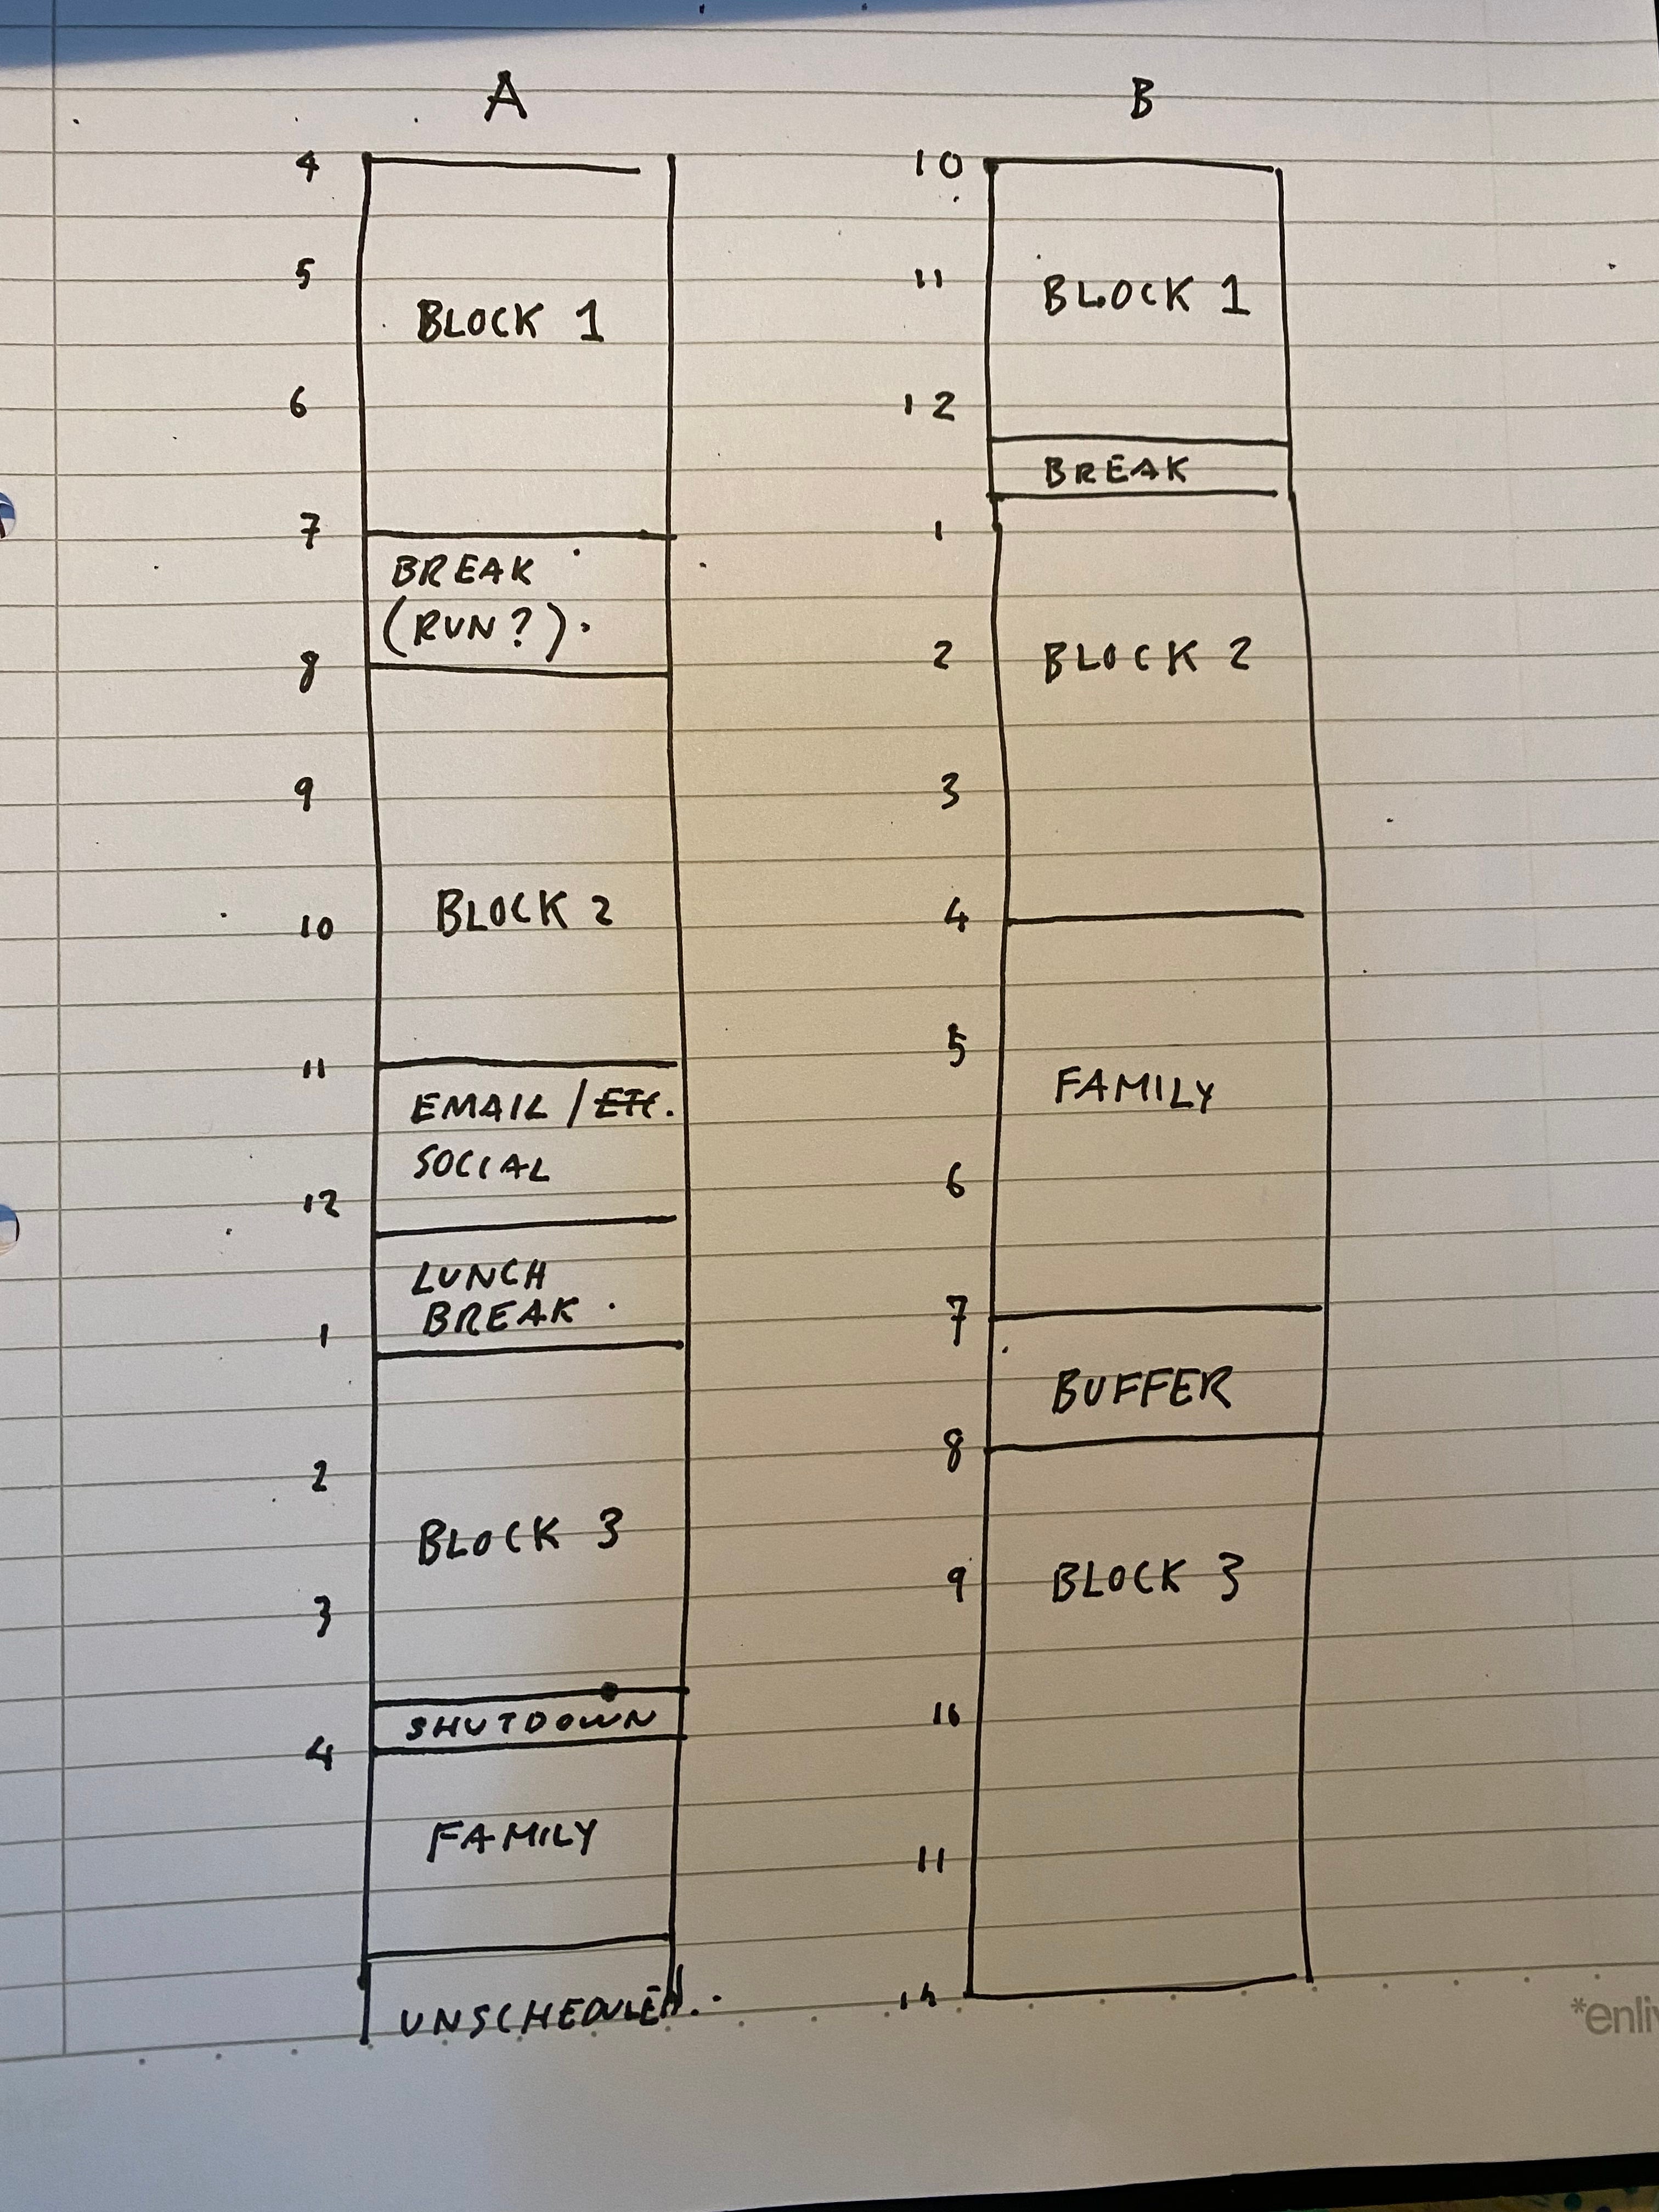 A
4
5
BLOCK 1
6
7
BREAK
(RUN?).
8
9
BLOCK 2
10
11
EMAIL / ETC.
SOCIAL
12
LUNCH
BREAK
1
2
BLOCK 3
3
SHUTDOWN
4
FAMILY
UNSCHEDULED..
B
10
11
BLOCK 1
12
BREAK
1
2
BLOCK 2
3
4
5
FAMILY
6
7
BUFFER
8
9
BLOCK 3
10
11